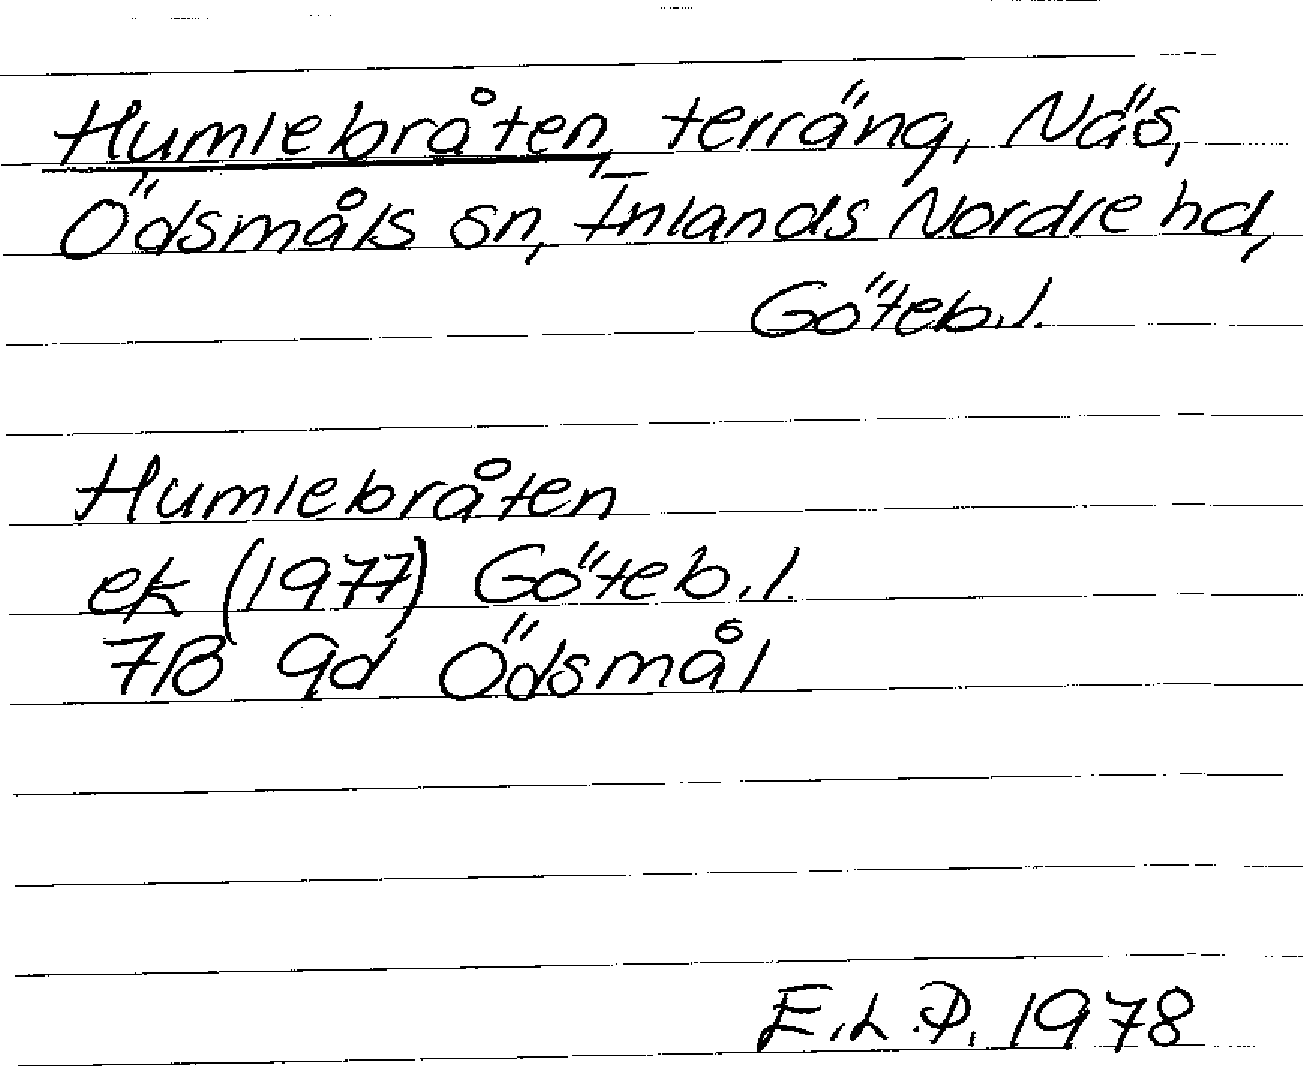 Humlebråten, terräng, Näs,
Ödsmåls sn, Inlands Nordre hd,
Göteb.l.
Humlebråten
ek (1977) Göteb.l.
7B 9d Ödsmål
E.L.P. 1978